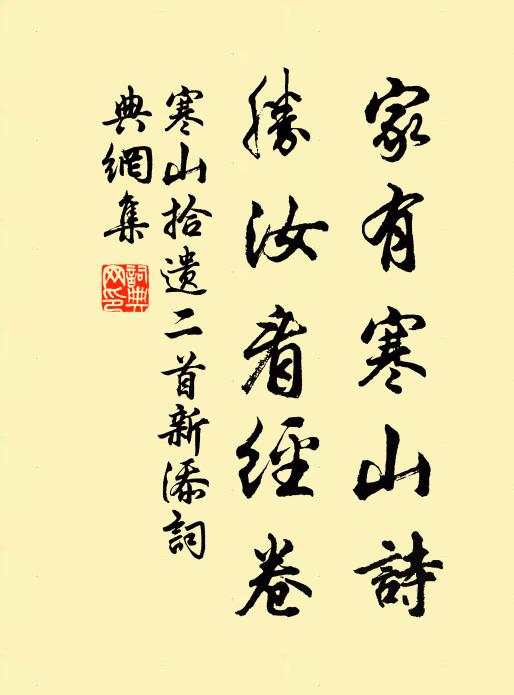 家有寒山詩
勝汝看經卷
寒山拾遺二首新添詞
典網集
詞典
网印